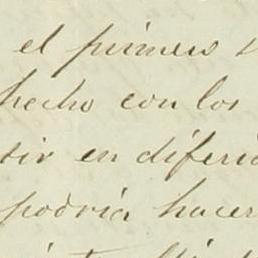 el primero
hecho con los
en diferi
podria hacer